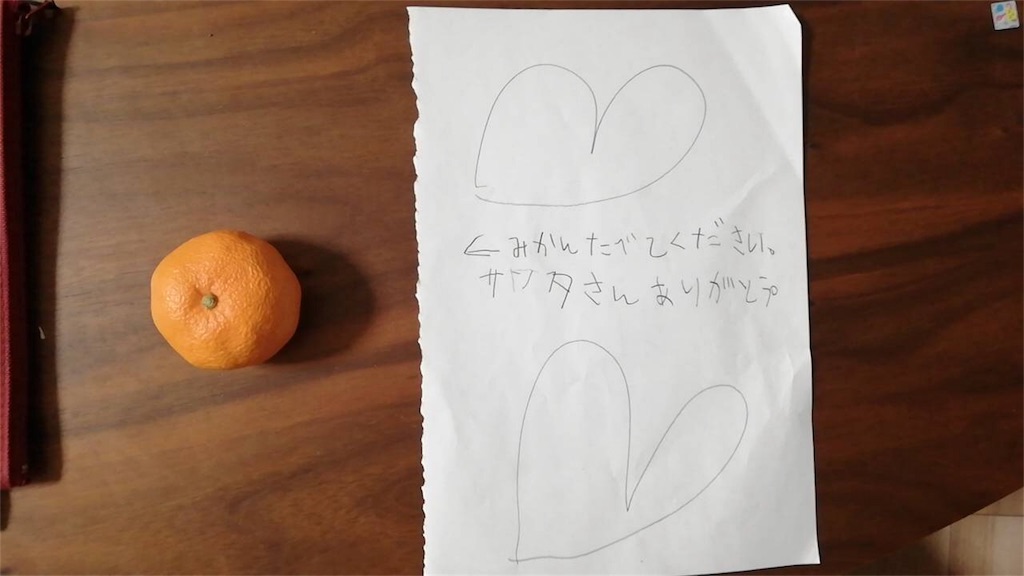 ←みかんたべてください。
サンタさんありがとう